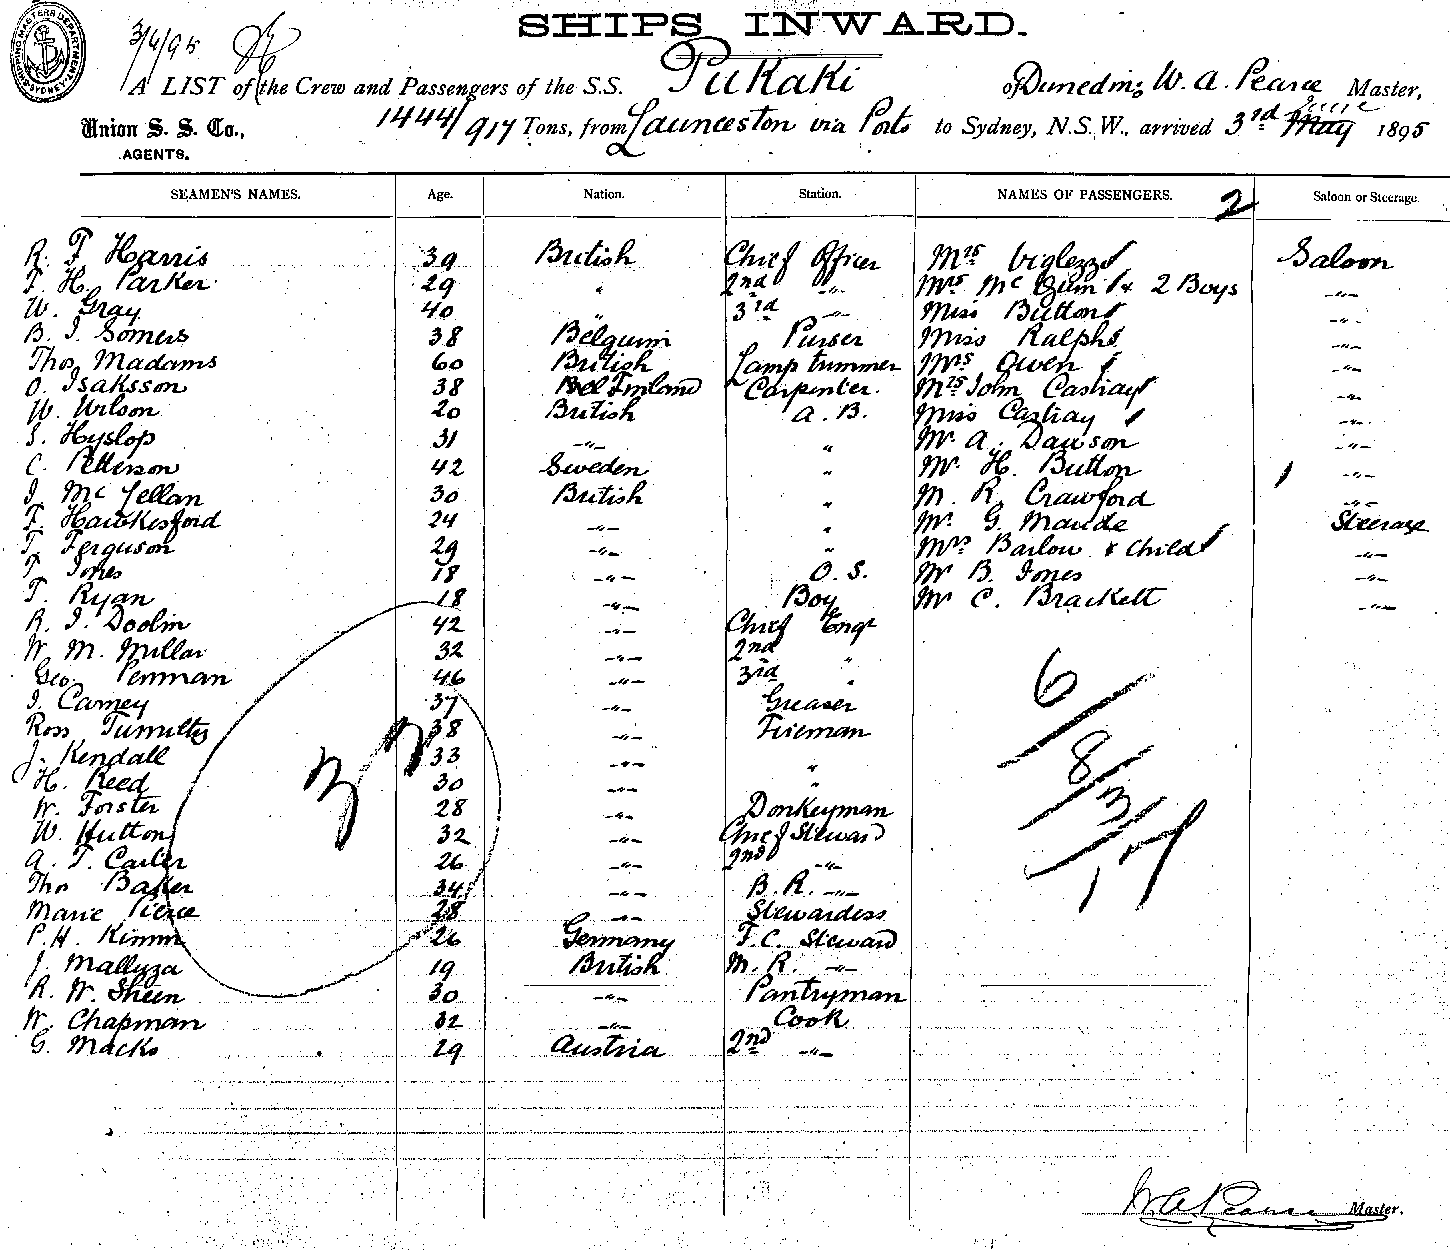 SHIPPING MASTERS DEPARTMENT. SYDNEY
3/6/95
SHIPS INWARD.
A LIST of the Crew and Passengers of the S.S. Pukaki of Dunedin, W. A. Pearce Master,
Union S. S. Co.,
AGENTS.
1444/917 Tons, from Launceston via Ports to Sydney, N.S.W., arrived 3rd May June 1895
SEAMEN'S NAMES. Age. Nation. Station. NAMES OF PASSENGERS. 2 Saloon or Steerage.
R. F Harris 39 British Chief Officer Mrs Viglezzo Saloon
F. H. Parker 29 " 2nd -"- Mrs McGum & 2 Boys -"-
W. Gray 40 " 3rd -"- Miss Button -"-
B. J. Somers 38 Belguim Purser Miss Ralph -"-
Thos Madams 60 British Lamp trimmer Mrs Owen -"-
O. Isaksson 38 Bel Finland Carpenter. Mrs John Castray -"-
W. Wilson 20 British A. B. Miss Castray -"-
S. Hyslop 31 -"- " Mr A. Dawson -"-
C. Petterson 42 Sweden " Mr H. Button -"-
J. McLellan 30 British " M. R. Crawford -"-
F. Hawkesford 24 -"- " Mr G. Maude Steerage
T. Ferguson 29 -"- " Mrs Barlow & Child -"-
T Jones 18 -"- O. S. Mr B. Jones -"-
T. Ryan 18 -"- Boy Mr C. Brackett -"-
R. J. Doolin 42 -"- Chief Engr
W. M. Millar 32 -"- 2nd "
Geo. Penman 46 -"- 3rd "
J. Carney 37 -"- Greaser
Ross Tumulty 38 -"- Fireman
J. Kendall 33 -"- "
H. Reed 30 -"- "
W. Forster 28 -"- Donkeyman
W. Hutton 32 -"- Chief Steward
A. T. Carter 26 -"- 2nd -"-
Thos Baker 34 -"- B. R. -"-
Marie Pierce 28 -"- Stewardess
P. H. Kimm 26 Germany F. C. Steward
J. Mallyza 19 British M. R. -"-
R. W. Sheen 30 -"- Pantryman
W. Chapman 32 -"- Cook
G. Macks 29 Austria 2nd -"-
6/8/3/17
W A Pearce Master.